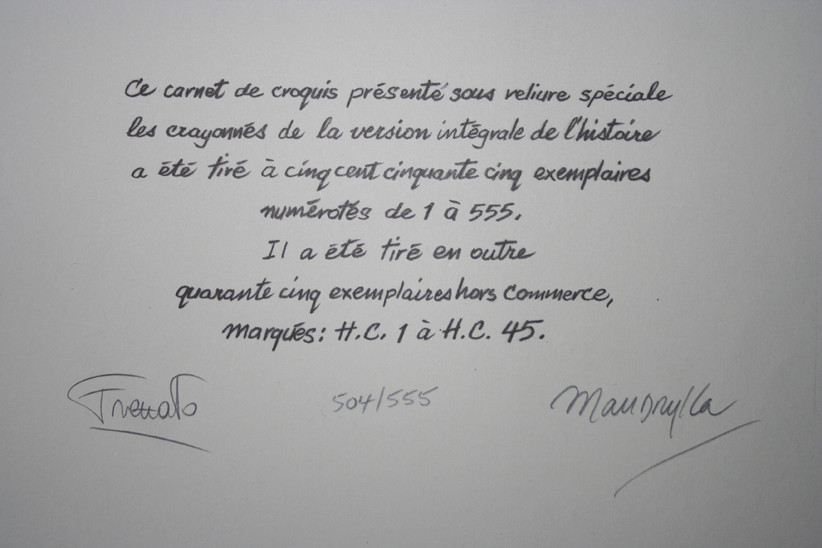 Ce carnet de croquis présenté sous reliure spéciale
les crayonnés de la version intégrale de l'histoire
a été tiré à cinq cent cinquante cinq exemplaires
numérotés de 1 à 555.
Il a été tiré en outre
quarante cinq exemplaires hors commerce,
marqués : H.C. 1 à H.C. 45.
504/555
Mandrylla